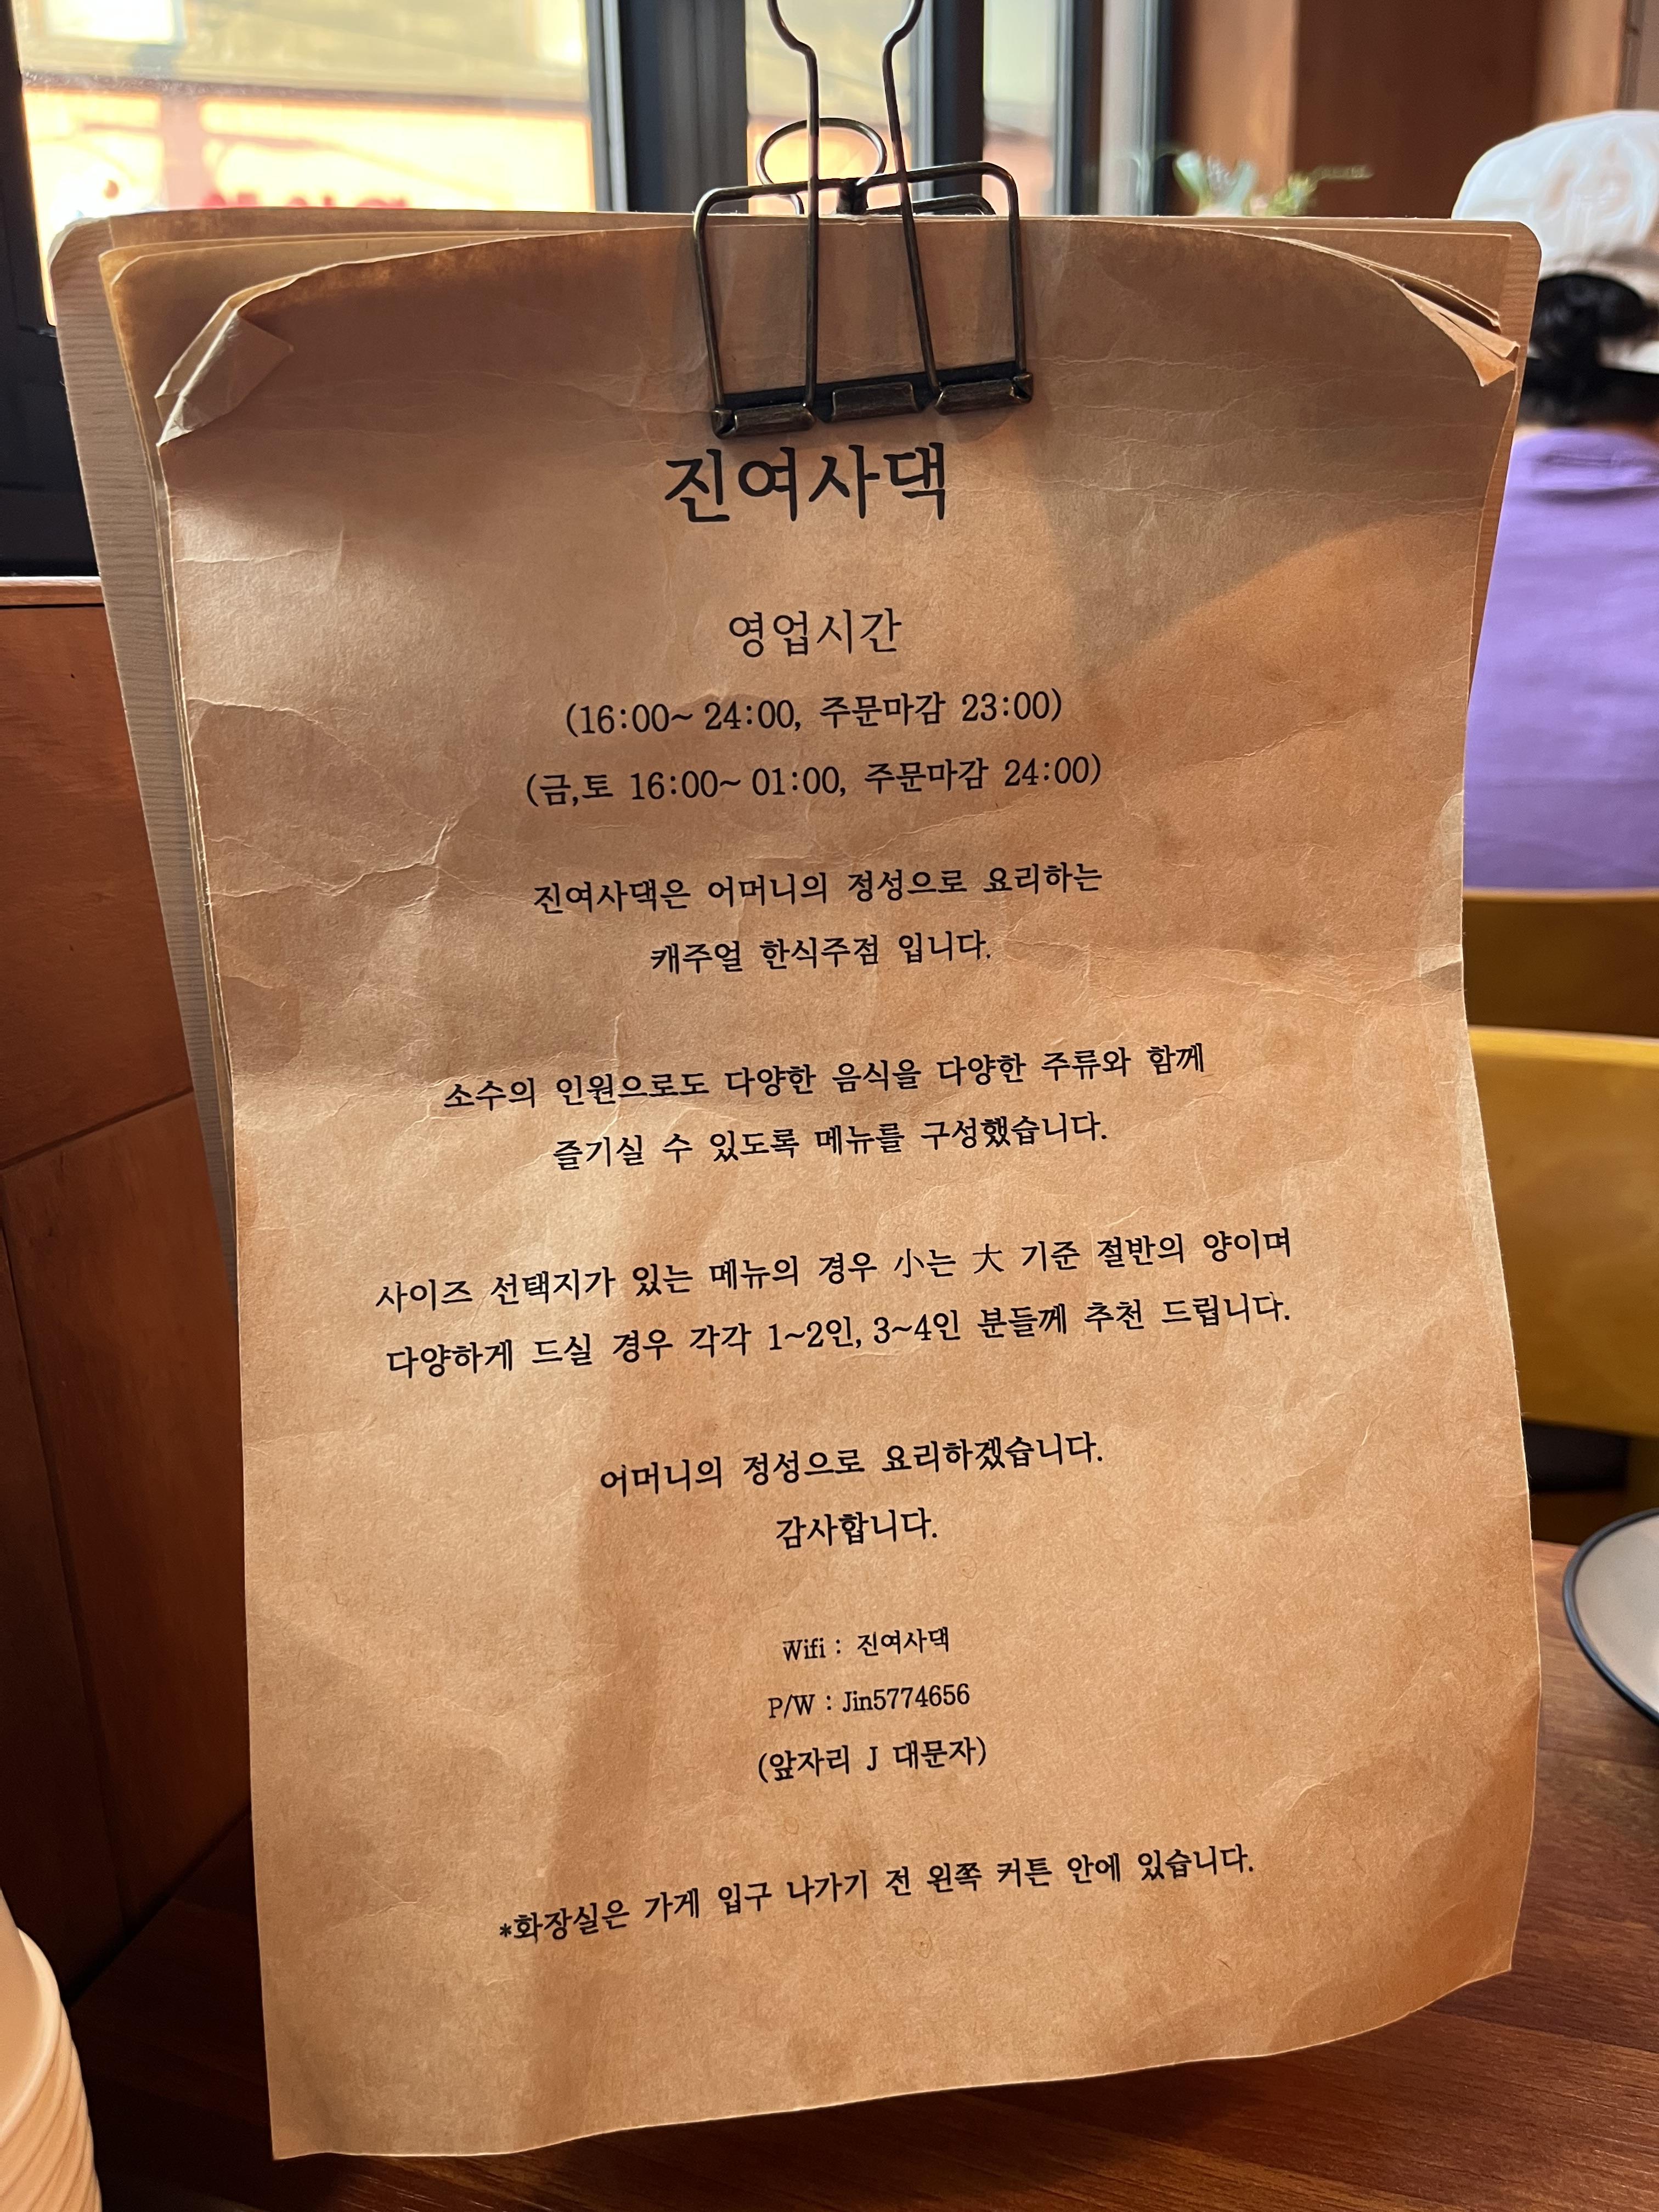 진여사댁
영업시간
(16:00~ 24:00, 주문마감 23:00)
(금,토 16:00~ 01:00, 주문마감 24:00)
진여사댁은 어머니의 정성으로 요리하는
캐주얼 한식주점 입니다.
소수의 인원으로도 다양한 음식을 다양한 주류와 함께
즐기실 수 있도록 메뉴를 구성했습니다.
사이즈 선택지가 있는 메뉴의 경우 小는 大 기준 절반의 양이며
다양하게 드실 경우 각각 1~2인, 3~4인 분들께 추천 드립니다.
어머니의 정성으로 요리하겠습니다.
감사합니다.
Wifi : 진여사댁
P/W : Jin5774656
(앞자리 J 대문자)
*화장실은 가게 입구 나가기 전 왼쪽 커튼 안에 있습니다.